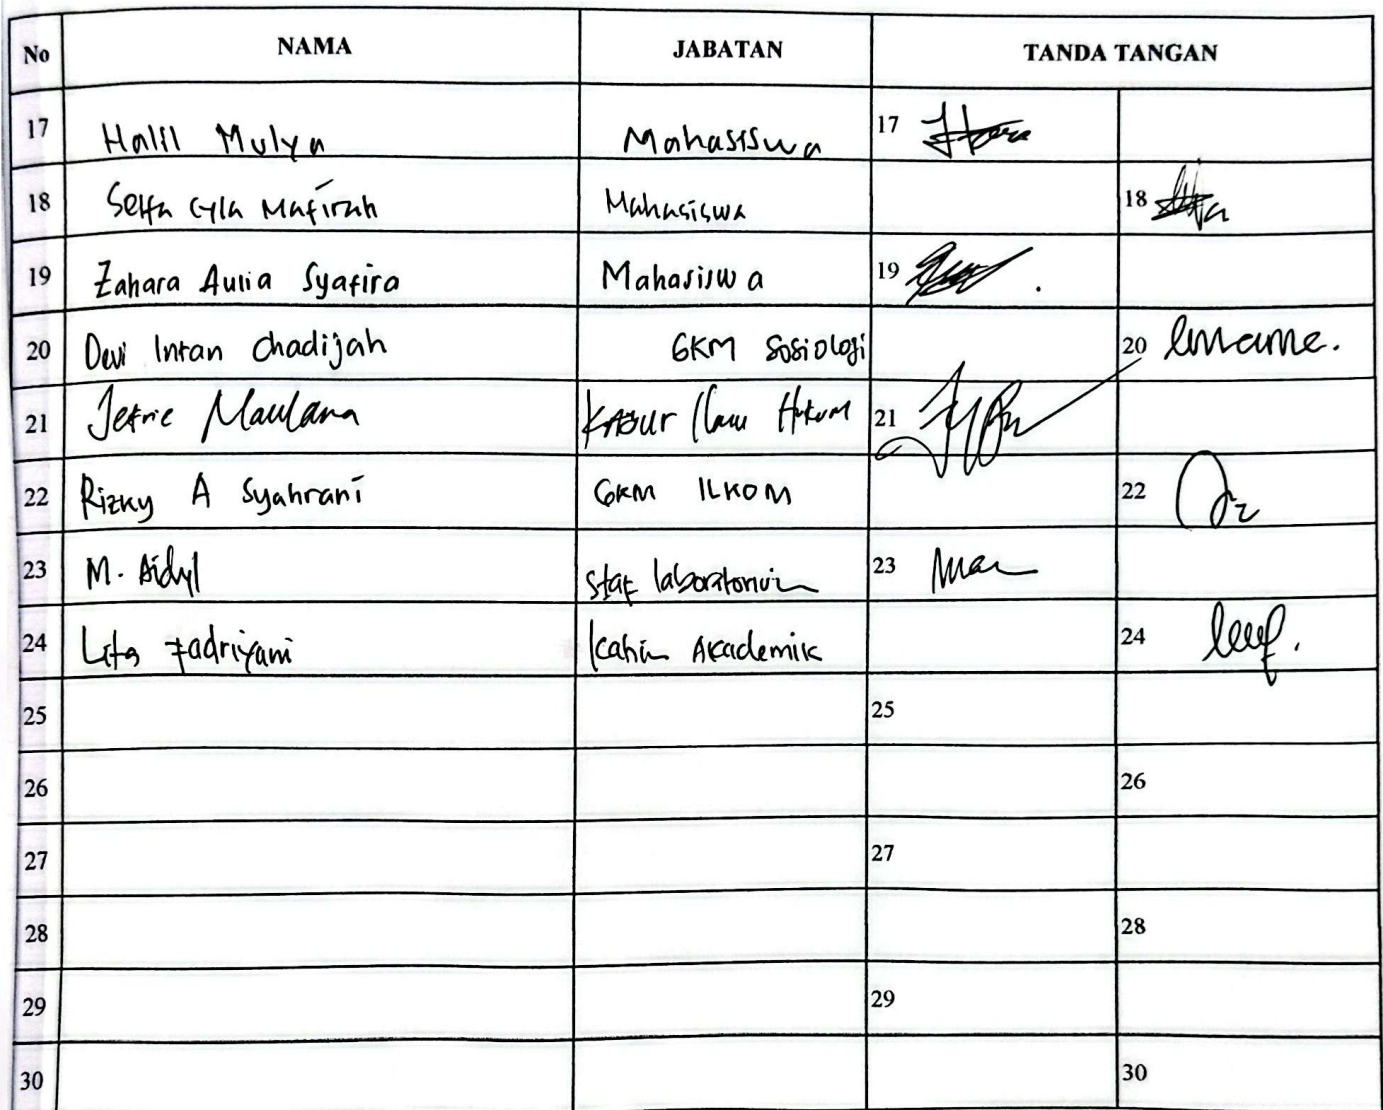 No NAMA JABATAN TANDA TANGAN
17 Halil Mulya Mahasiswa 17
18 Selfa Cyla Mafirah Mahasiswa 18
19 Zahara Aulia Syafira Mahasiswa 19
20 Devi Intan Chadijah GKM Sosiologi 20
21 Jefrie Maulana Hukum 21
22 Rizky A Syahrani GKM ILKOM 22
23 M. Aidyl Staf laboratorium 23
24 Lita Fadriyani Akademik 24
25 25
26 26
27 27
28 28
29 29
30 30